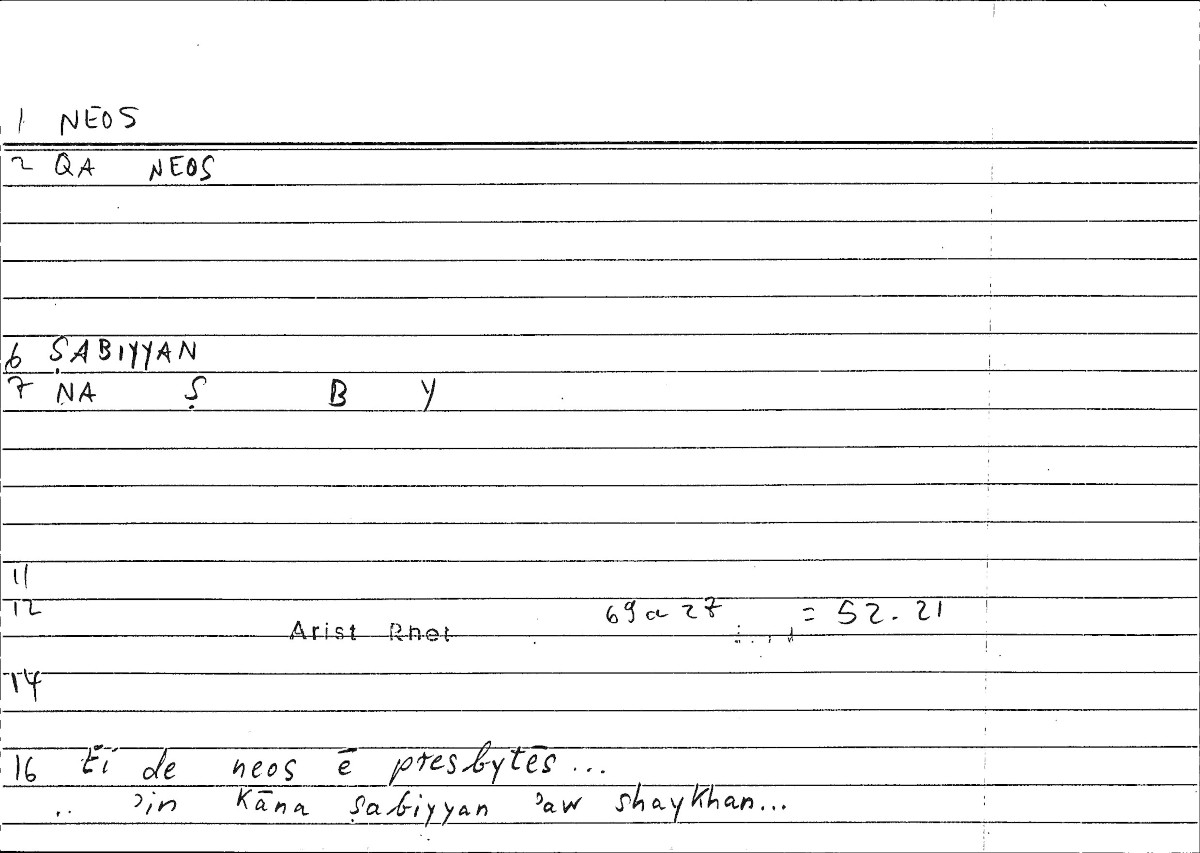 1 NEOS
2 QA NEOS
6 ṢABIYYAN
7 NA Ṣ B Y
11
12 69a27 = 52.21
Arist Rhet
14
16 ēi de neos ē presbytēs...
.. ʾin kāna ṣabiyyan ʾaw shaykhan...